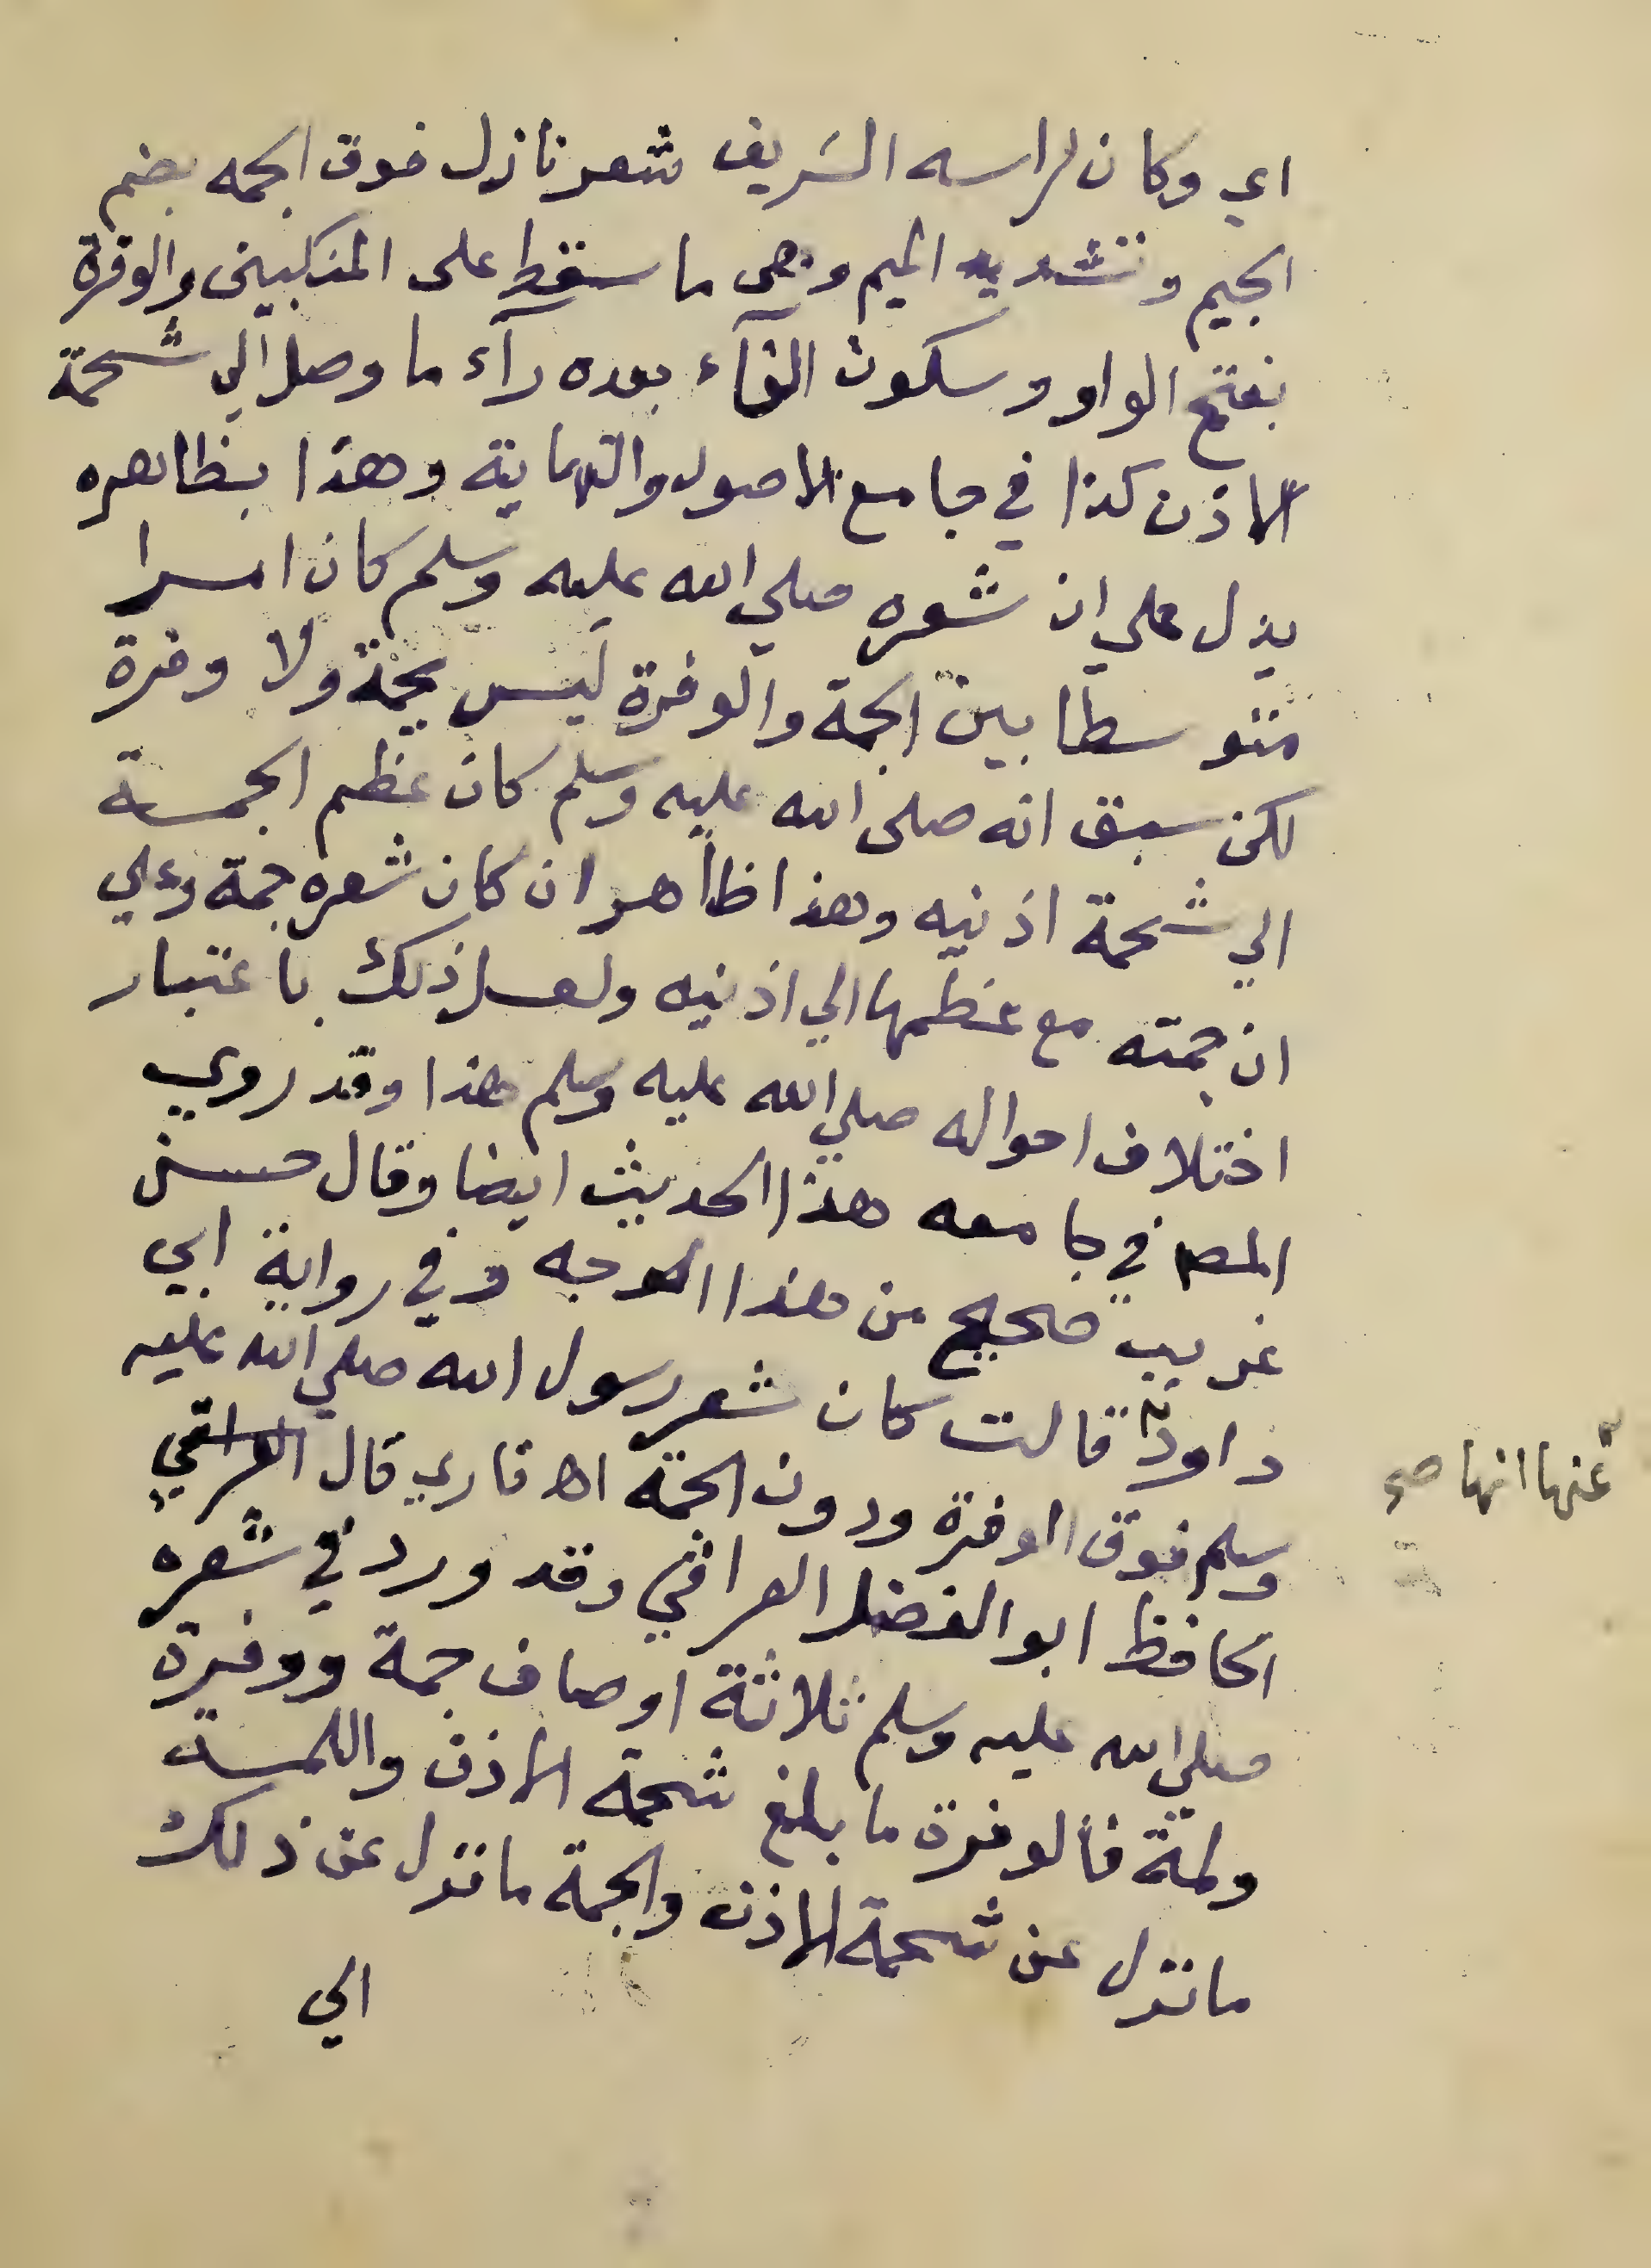 اي وكان لراسه الشريف شعر نازل فوق الجمه بضم
الجيم وتشديد الميم وهى ما سقط على المنكبين والوفرة
بفتح الواو وسكون الفآء بعده رآء ما وصل الي شحمة
الاذن كذا في جامع الاصول والنهاية وهذا بظاهره
يدل علي ان شعره صلي الله عليه وسلم كان امرا
متوسطا بين الجمة والوفرة ليس بجمة ولا وفرة
لكن سبق انه صلى الله عليه وسلم كان عظم الجمة
الي شحمة اذنيه وهذا ظاهر ان كان شعره جمة وعلي
ان جمته مع عظمها الي اذنيه ولعل ذلك باعتبار
اختلاف احواله صلي الله عليه وسلم هذا وقد روي
المصم في جامعه هذا الحديث ايضا وقال حسن
غريب صحيح من هذا الوجه وفي رواية ابي
داود قالت كان شعر رسول الله صلي الله عليه
عنها انها صح
وسلم فوق الوفرة ودون الجمة اه قاري قال العراقي
الحافظ ابو الفضل العراقي وقد ورد في شعره
صلي الله عليه وسلم ثلاثة اوصاف جمة ووفرة
ولمة فالوفرة ما بلغ شحمة الاذن واللمة
ما نزل عن شحمة الاذن والجمة ما نزل عن ذلك
الي